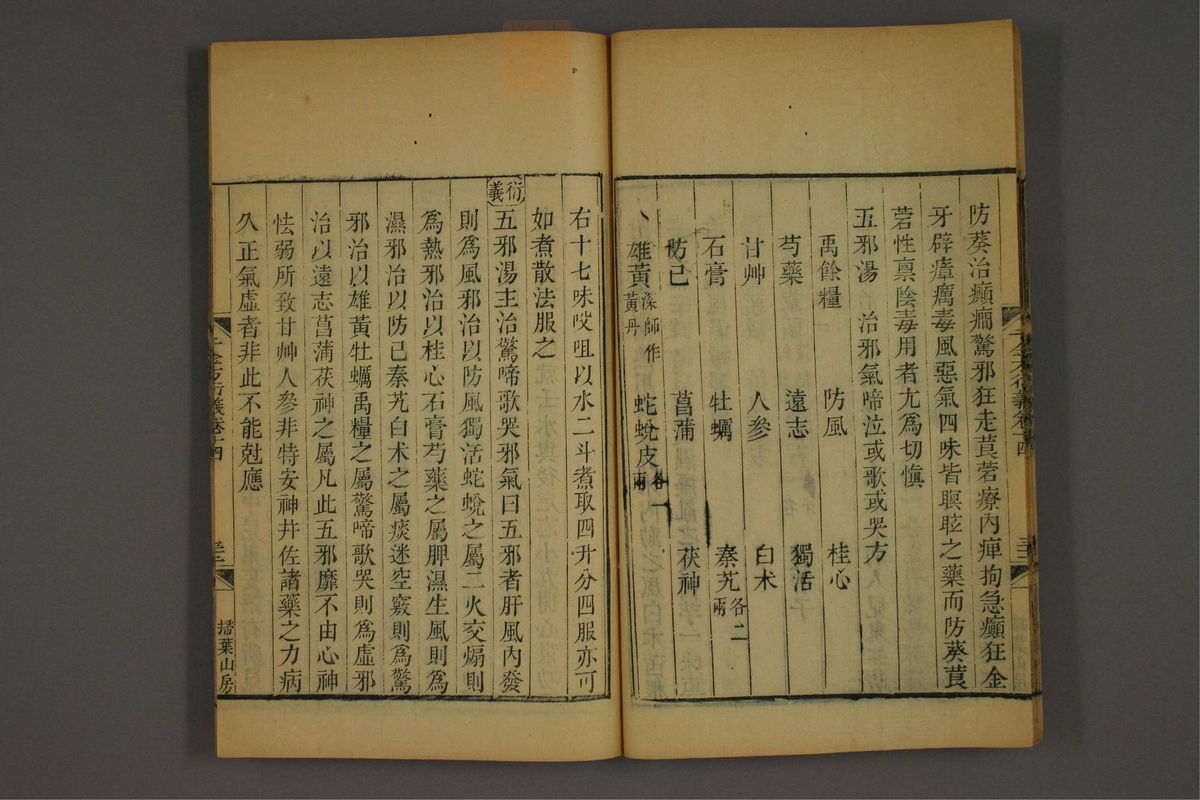 防葵治癲癎驚邪狂走莨菪療內痺拘急癲狂金
牙辟瘴癘毒風惡氣四味皆瞑眩之藥而防葵莨
菪性禀陰毒用者尤爲切愼
五邪湯　治邪氣啼泣或歌或哭方
禹餘糧　防風　桂心
芍藥　遠志　獨活
甘艸　人參　白术
石膏　牡蠣　秦艽各二兩
防己　菖蒲　茯神
雄黃深師作黃丹　蛇蛻皮各一兩
右十七味㕮咀以水二斗煮取四升分四服亦可
如煮散法服之
衍義
五邪湯主治驚啼歌哭邪氣曰五邪者肝風內發
則爲風邪治以防風獨活蛇蛻之屬二火交煽則
爲熱邪治以桂心石膏芍藥之屬脾濕生風則爲
濕邪治以防己秦艽白术之屬痰迷空竅則爲驚
邪治以雄黃牡蠣禹糧之屬驚啼歌哭則爲虛邪
治以遠志菖蒲茯神之屬凡此五邪靡不由心神
怯弱所致甘艸人參非特安神幷佐諸藥之力病
久正氣虛者非此不能尅應
千金方衍義卷十四
掃葉山房